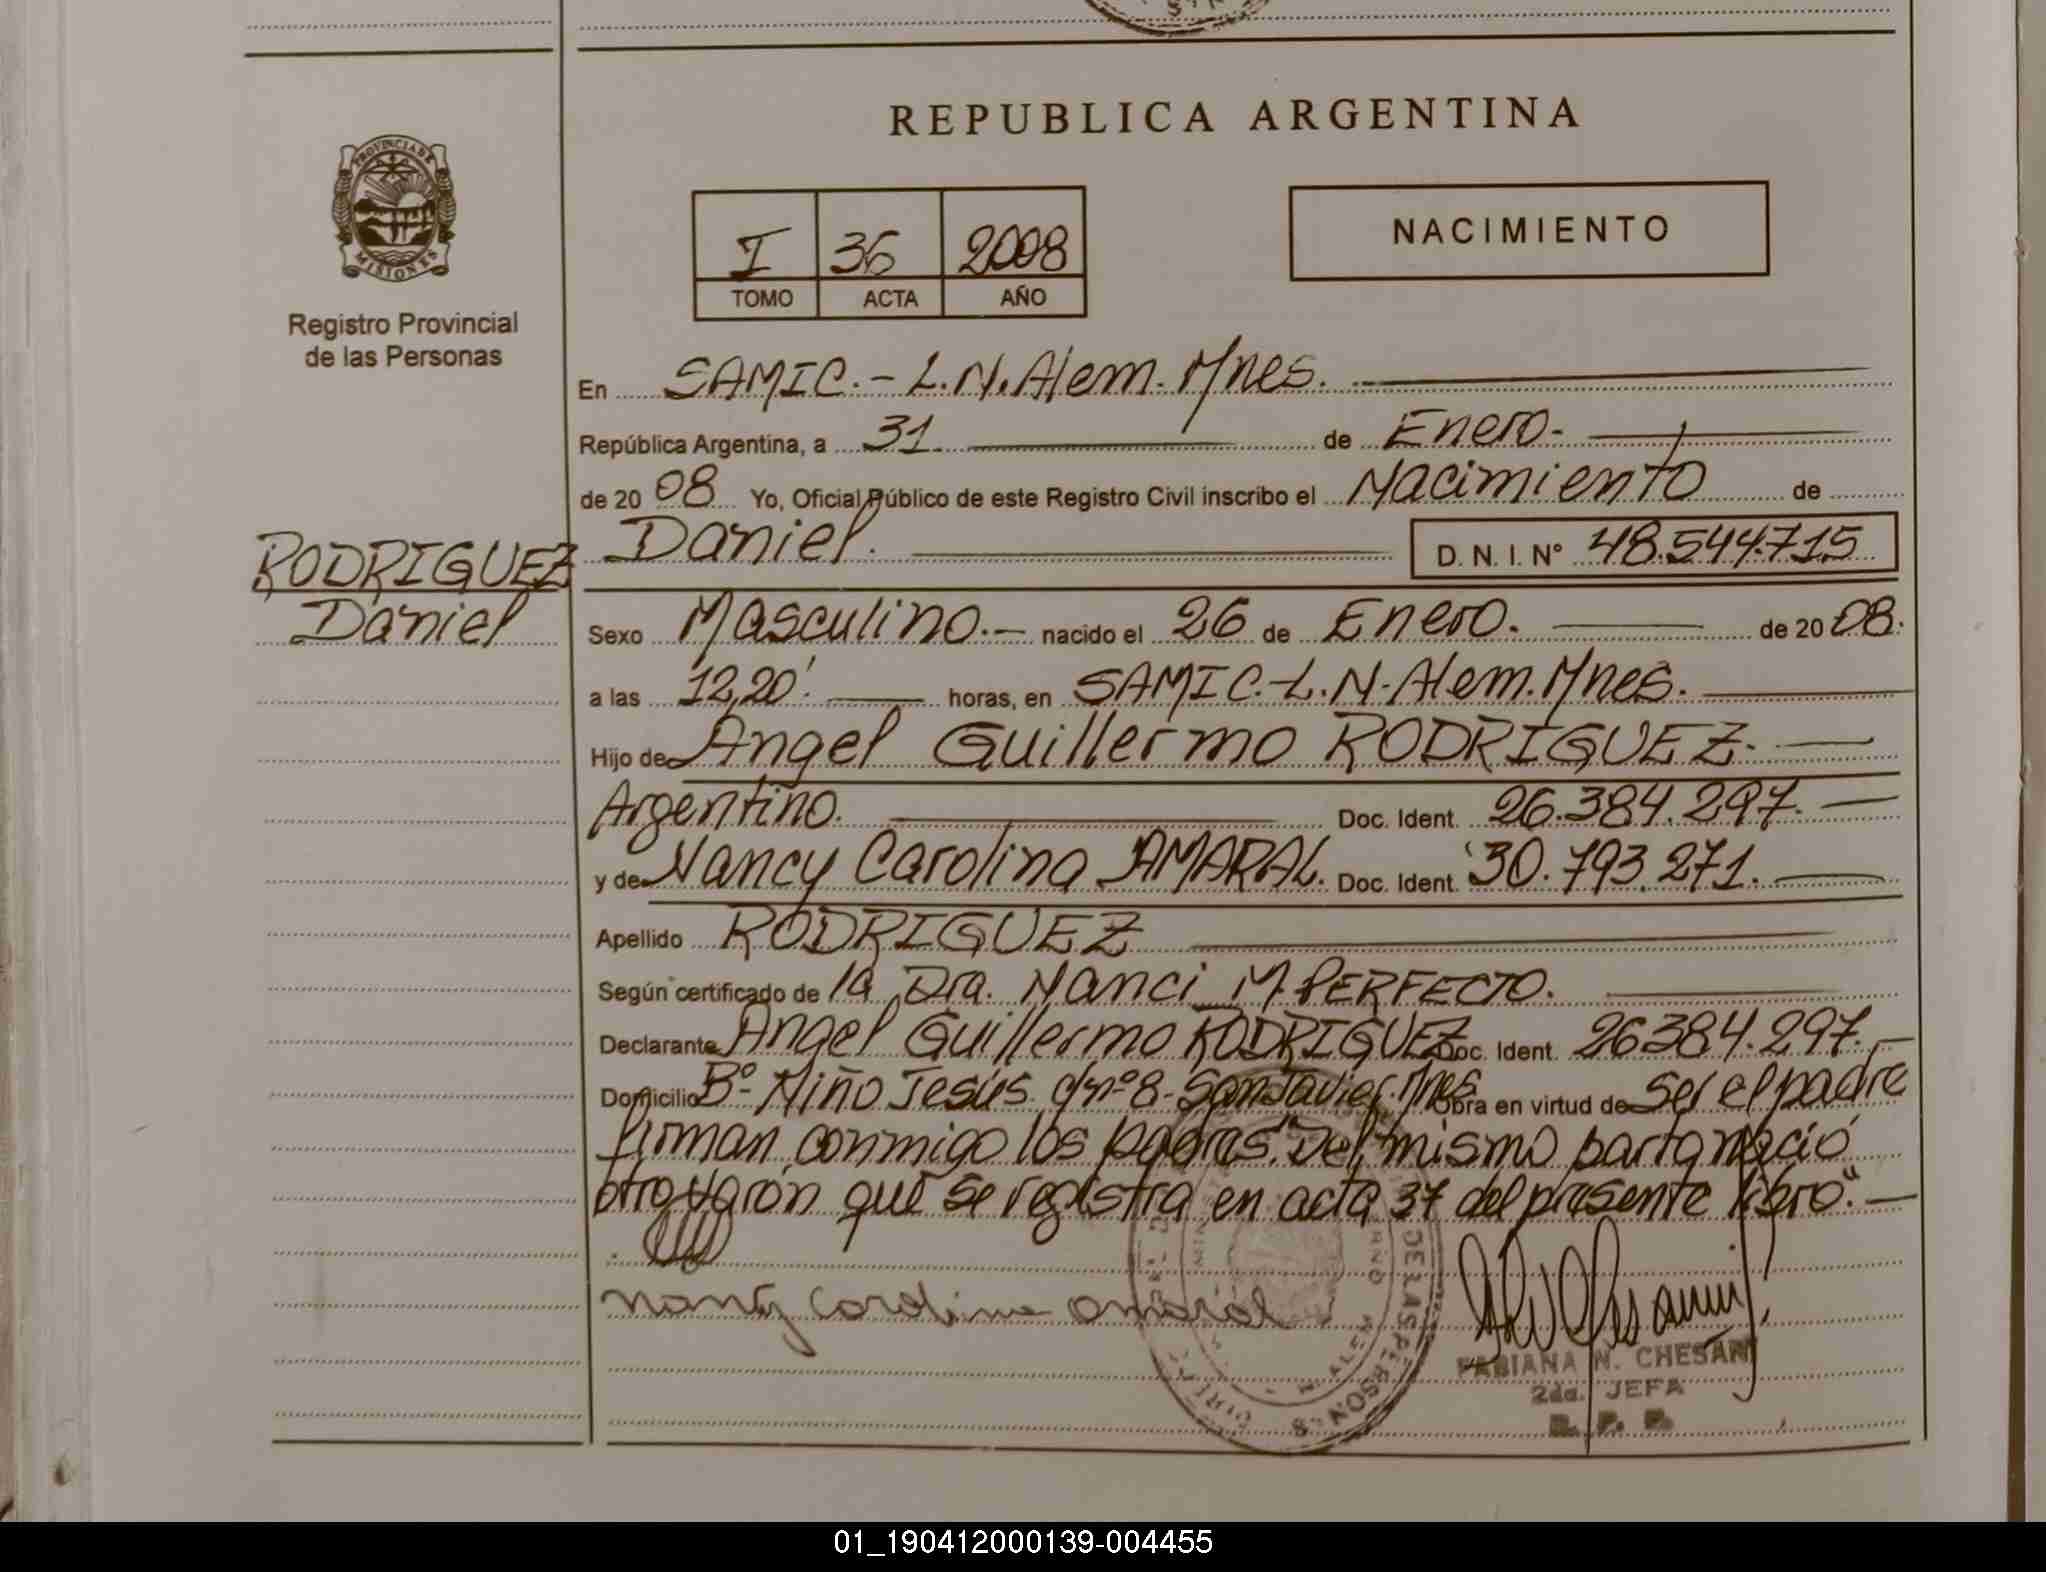 REPUBLICA ARGENTINA
PROVINCIA DE
MISIONES
Registro Provincial
de las Personas
I 36 2008
TOMO ACTA AÑO
NACIMIENTO
En SAMIC.- L.N.Alem. Mnes.
República Argentina, a 31 de Enero.
de 2008 Yo, Oficial Público de este Registro Civil inscribo el Nacimiento de
RODRIGUEZ
Daniel
Daniel. D. N. I. Nº 48.544.715
Sexo Masculino.- nacido el 26 de Enero. de 2008.
a las 12,20' horas, en SAMIC.-L.N.Alem.Mnes.
Hijo de Angel Guillermo RODRIGUEZ.
Argentino. Doc. Ident. 26.384.297.
y de Nancy Carolina AMARAL. Doc. Ident. 30.793.271.
Apellido RODRIGUEZ
Según certificado de la Dra. Nanci M. PERFECTO.
Declarante Angel Guillermo RODRIGUEZ Doc. Ident. 26384.297.
Domicilio Bº- Niño Jesús nº8- San Javier. Mnes Obra en virtud de ser el padre
firman conmigo los padres. Del mismo parto nació
otro varón que se registra en acta 37 del presente libro."
FABIANA N. CHESANI
2da. JEFA
R. P. P.
DE LAS PERSONAS
01_190412000139-004455